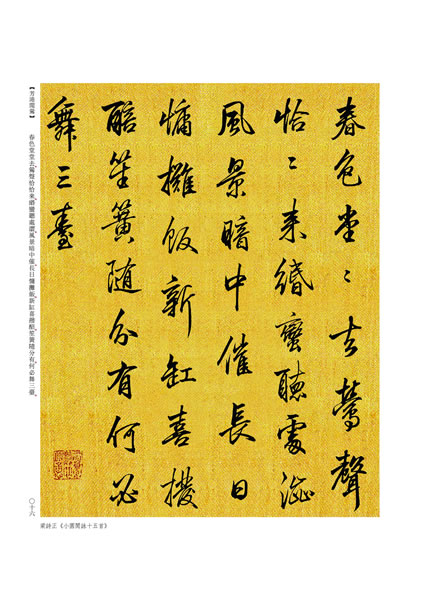 春色堂〻去鶯聲
恰〻来緡蠻聽處
風景暗中催長日
慵攤飯新缸喜撥
醅笙簧随分有何必
舞三臺
春色堂堂去鶯聲恰恰来緡蠻聽處風景暗中催長日慵攤飯新缸喜撥醅笙簧隨分有何必舞三臺
〇十六
梁詩正《小園閒詠十五首》